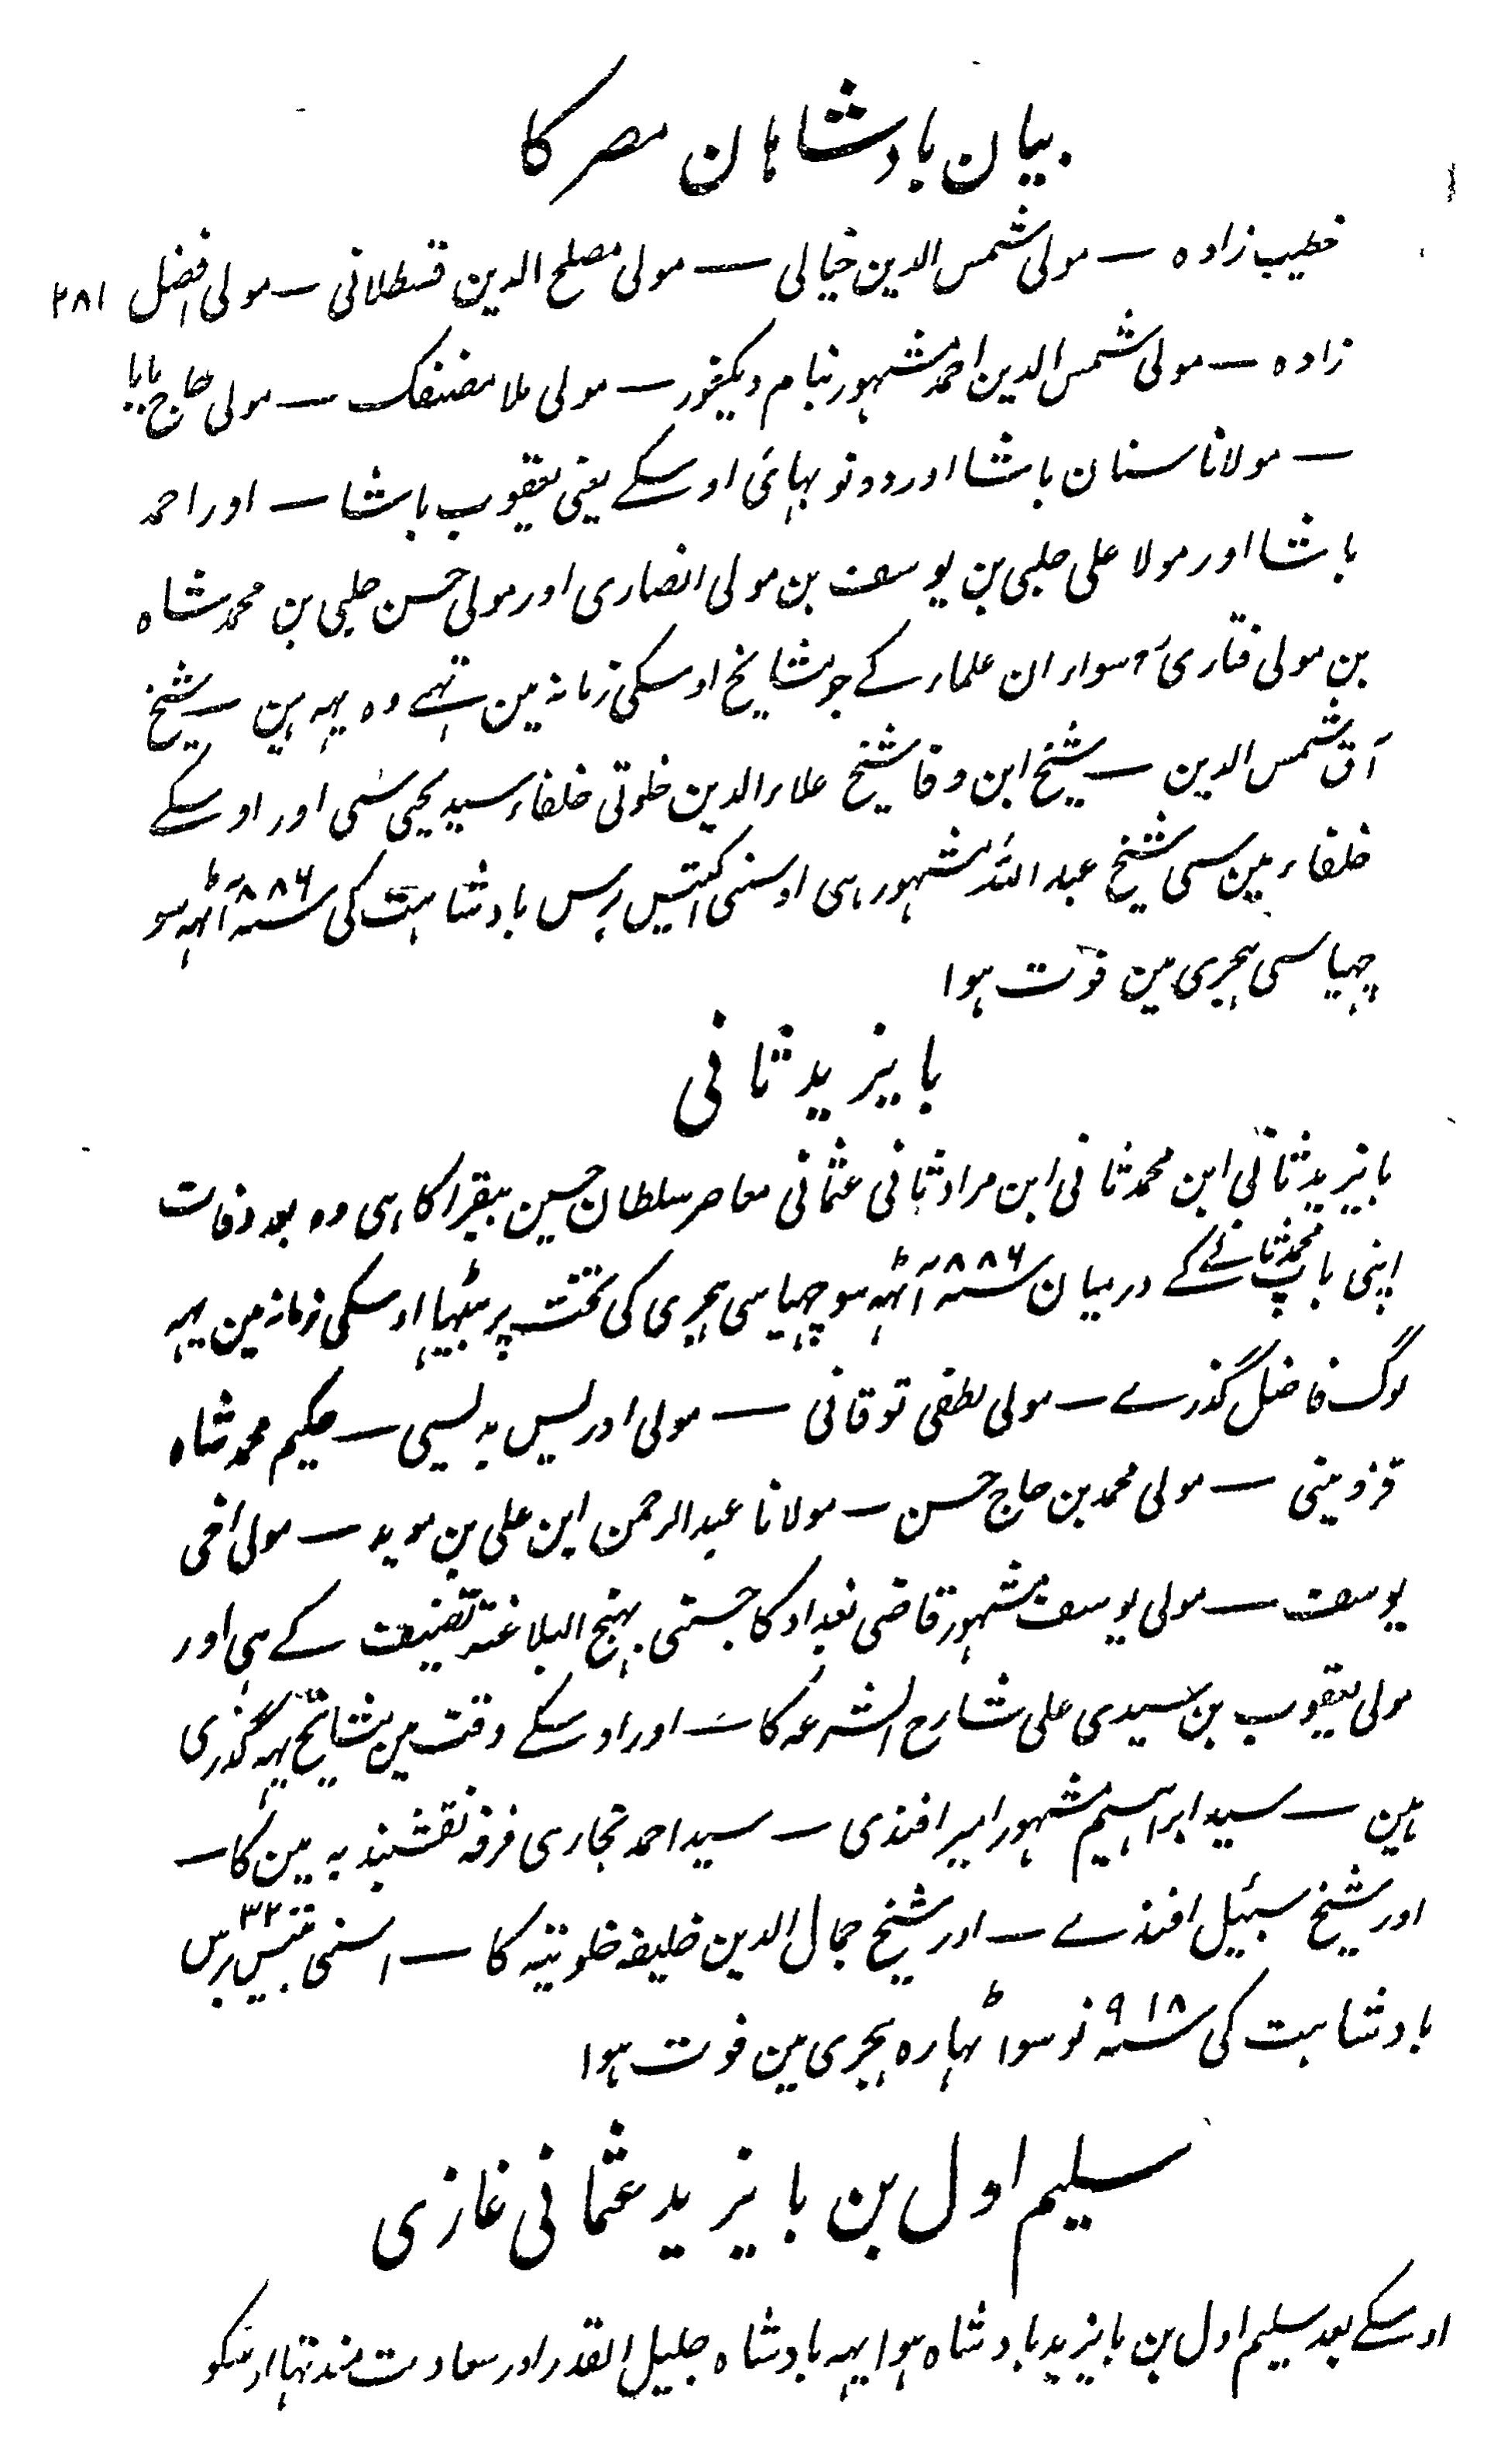 بیان بادشاہان مصر کا
خطیب زادہ — مولی شمس الدین خیالی — مولی مصلح الدین قسطلانی — مولی افضل ۲۸۱
زادہ — مولی شمس الدین احمد مشہور بنام دیکفور — مولی ملا مصنفک — مولی حاج بابا
— مولانا سنان باشا اور دونو بہائی اوسکے یعنی یعقوب باشا — اور احمد
باشا اور مولا علی چلپی بن یوسف بن مولی انصاری اور مولی حسن چلپی بن محمد شاہ
بن مولی فناری ۳ سواد ان علماء کے جو مشایخ اوسکی زمانہ مین تہے وہ یہہ ہین — شیخ
آق شمس الدین — شیخ ابن وفا شیخ علاء الدین خلوتی خلفاء سید یحیی سی اور اوسکے
خلفاء مین سی شیخ عبد اللہ مشہور ہی اوسنی اکتیس برس بادشاہت کی سنہ ۸۸۶ آٹہہ سو
چہیاسی ہجری مین فوت ہوا
بایزید ثانی
بایزید ثانی ابن محمد ثانی ابن مراد ثانی عثمانی معاصر سلطان حسین بیقرا کا ہی وہ بعد وفات
اپنی باپ محمد ثانے کے درمیان سنہ ۸۸۶ آٹہہ سو چہیاسی ہجری کی تخت پر بیٹہا اوسکی زمانہ مین یہہ
لوگ فاضل گذرے — مولی لطفی توقانی — مولی ادریس بدلیسی — حکیم محمد شاہ
قزوینی — مولی محمد بن حاج حسن — مولانا عبد الرحمن ابن علی بن موید — مولی اخی
یوسف — مولی یوسف مشہور قاضی بغداد کا جسنی نہج البلاغتہ تصنیف کے ہی اور
مولی یعقوب بن سیدی علی شارح الشرعہ کا — اور اوسکے وقت مین مشایخ یہہ گذری
ہین — سید ابراہیم مشہور امیر افندی — سید احمد بخاری فرقہ نقشبندیہ مین کا —
اور شیخ سہیل افندے — اور شیخ جمال الدین خلیفہ خلوتیہ کا — اسنی بتیس ۳۲ برس
بادشاہت کی سنہ ۹۱۸ نو سو اٹہارہ ہجری مین فوت ہوا
سلیم اول بن بایزید عثمانی غازی
اوسکے بعد سلیم اول بن بایزید بادشاہ ہوا یہہ بادشاہ جلیل القدر اور سعادت مند تہا اوسکو